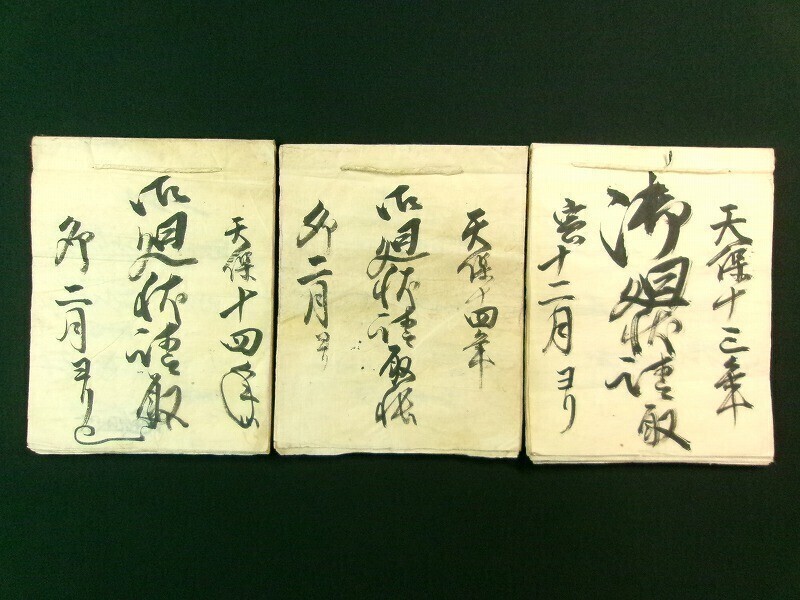 天保十三年
御廻状請取
寅十二月ヨリ
天保十四年
御廻状請取帳
卯二月ヨリ
天保十四年
御廻状請取
卯二月ヨリ